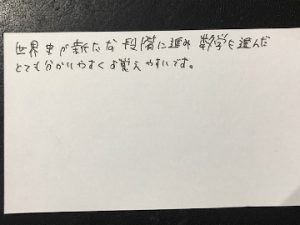 世界史が新たな段階に進み 数学も進んだ
とても分かりやすくお覚えやすいです。